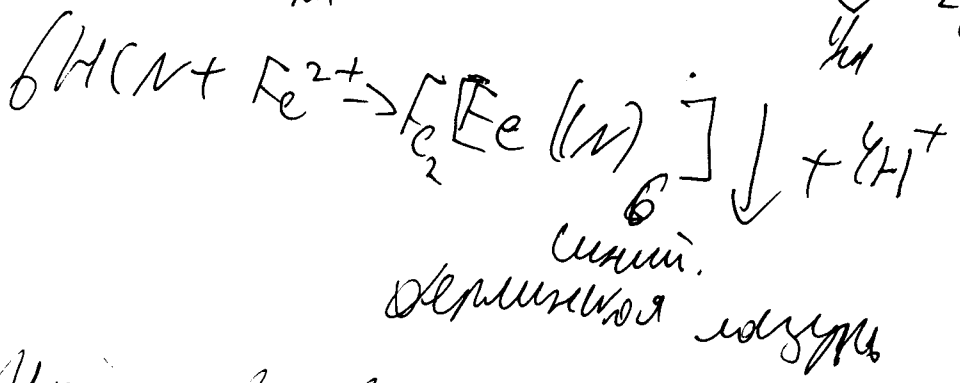 6HCN + Fe²⁺ → Fe₂[Fe(CN)₆]↓ + 4H⁺
синий.
берлинская лазурь